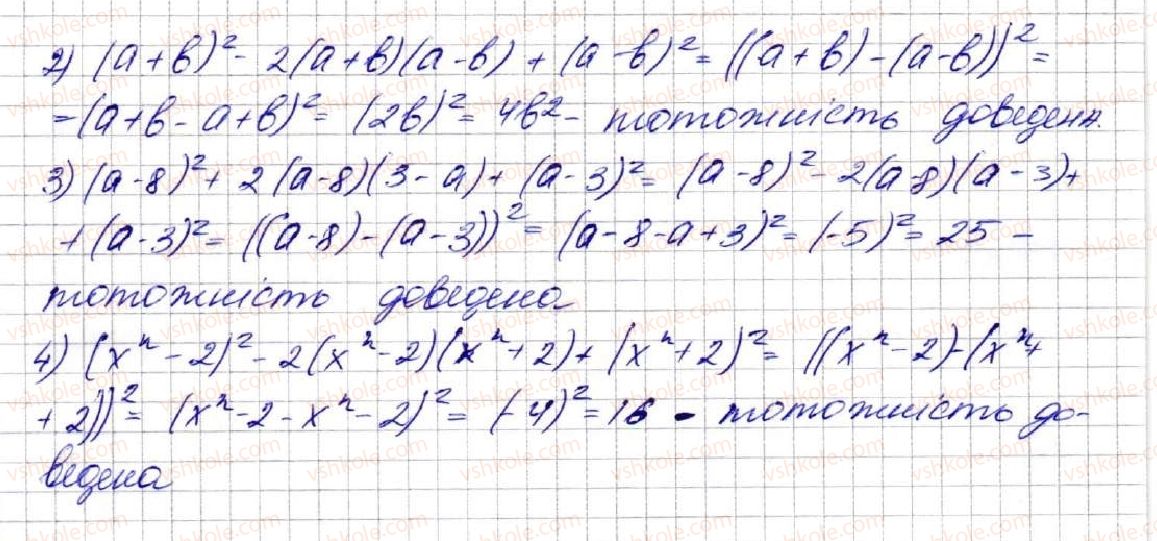 2) (a+b)² - 2(a+b)(a-b) + (a-b)² = ((a+b)-(a-b))² =
= (a+b-a+b)² = (2b)² = 4b² - тотожність доведена.
3) (a-8)² + 2(a-8)(3-a) + (a-3)² = (a-8)² - 2(a-8)(a-3) +
+ (a-3)² = ((a-8)-(a-3))² = (a-8-a+3)² = (-5)² = 25 -
тотожність доведена
4) (xⁿ-2)² - 2(xⁿ-2)(xⁿ+2) + (xⁿ+2)² = ((xⁿ-2)-(xⁿ+
+2))² = (xⁿ-2-xⁿ-2)² = (-4)² = 16 - тотожність до-
ведена